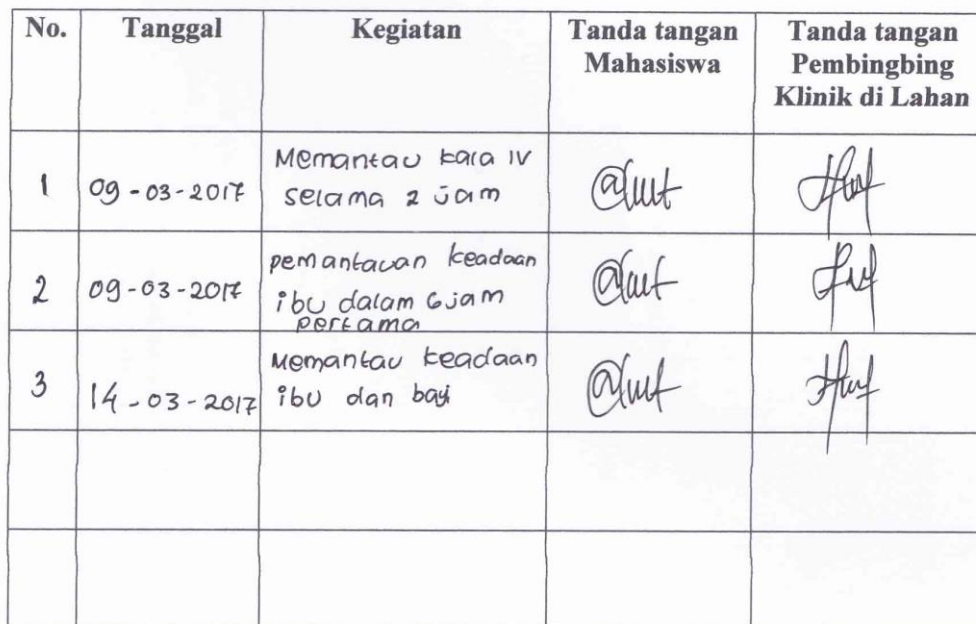 No. Tanggal Kegiatan Tanda tangan Mahasiswa Tanda tangan Pembingbing Klinik di Lahan
1 09-03-2017 Memantau kala IV
selama 2 jam
2 09-03-2017 pemantauan keadaan
ibu dalam 6 jam
pertama
3 14-03-2017 Memantau keadaan
ibu dan bayi